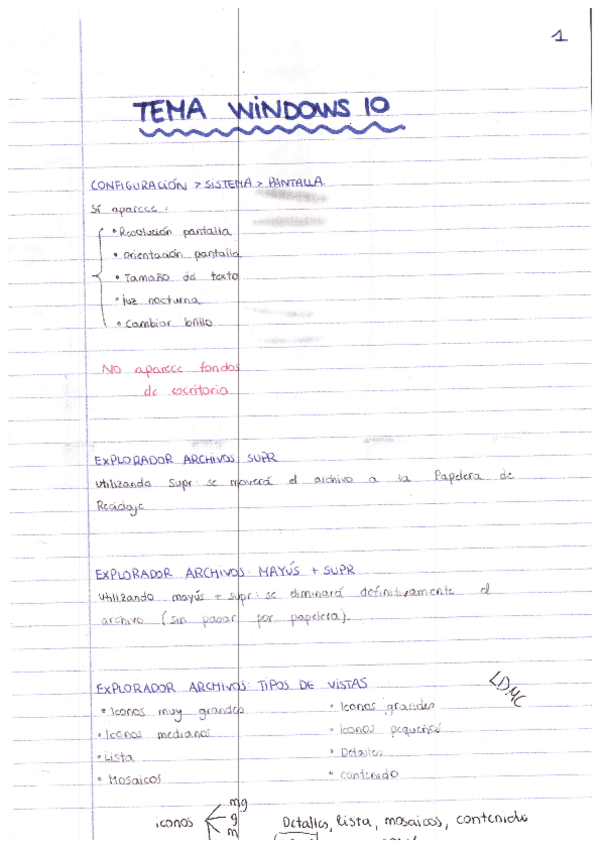 1
TEMA WINDOWS 10
CONFIGURACIÓN > SISTEMA > PANTALLA
Sí aparece:
• Resolución pantalla
• Orientación pantalla
• Tamaño del texto
• Luz nocturna
• Cambiar brillo
No aparece fondos
de escritorio
EXPLORADOR ARCHIVOS SUPR
Utilizando Supr: se moverá el archivo a la Papelera de
Reciclaje
EXPLORADOR ARCHIVOS: MAYÚS + SUPR
Utilizando mayús + supr: se eliminará definitivamente el
archivo (sin pasar por papelera).
EXPLORADOR ARCHIVOS: TIPOS DE VISTAS
LDMC
• Iconos muy grandes
• Iconos grandes
• Iconos medianos
• Iconos pequeños
• Lista
• Detalles
• Mosaicos
• Contenido
mg
iconos
g
m
Detalles, lista, mosaicos, contenido